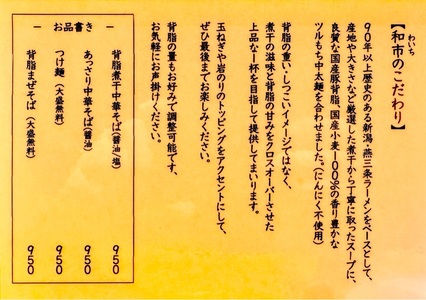 【和市のこだわり】
わいち
90年以上歴史のある新潟 燕三条ラーメンをベースとして、
産地や大きさなど厳選した煮干から丁寧に取ったスープに、
良質な国産豚背脂、国産小麦100%の香り豊かな
ツルもち中太麺を合わせました。(にんにく不使用)
背脂の重い・しつこいイメージではなく、
煮干の滋味と背脂の甘みをクロスオーバーさせた
上品な一杯を目指して提供してまいります。
玉ねぎや岩のりのトッピングをアクセントにして、
ぜひ最後までお楽しみください。
背脂の量もお好みで調整可能です、
お気軽にお声掛けください。
― お品書き ―
背脂煮干中華そば(醤油・塩) 950
あっさり中華そば(醤油) 950
つけ麺(大盛無料) 950
背脂まぜそば(大盛無料) 950